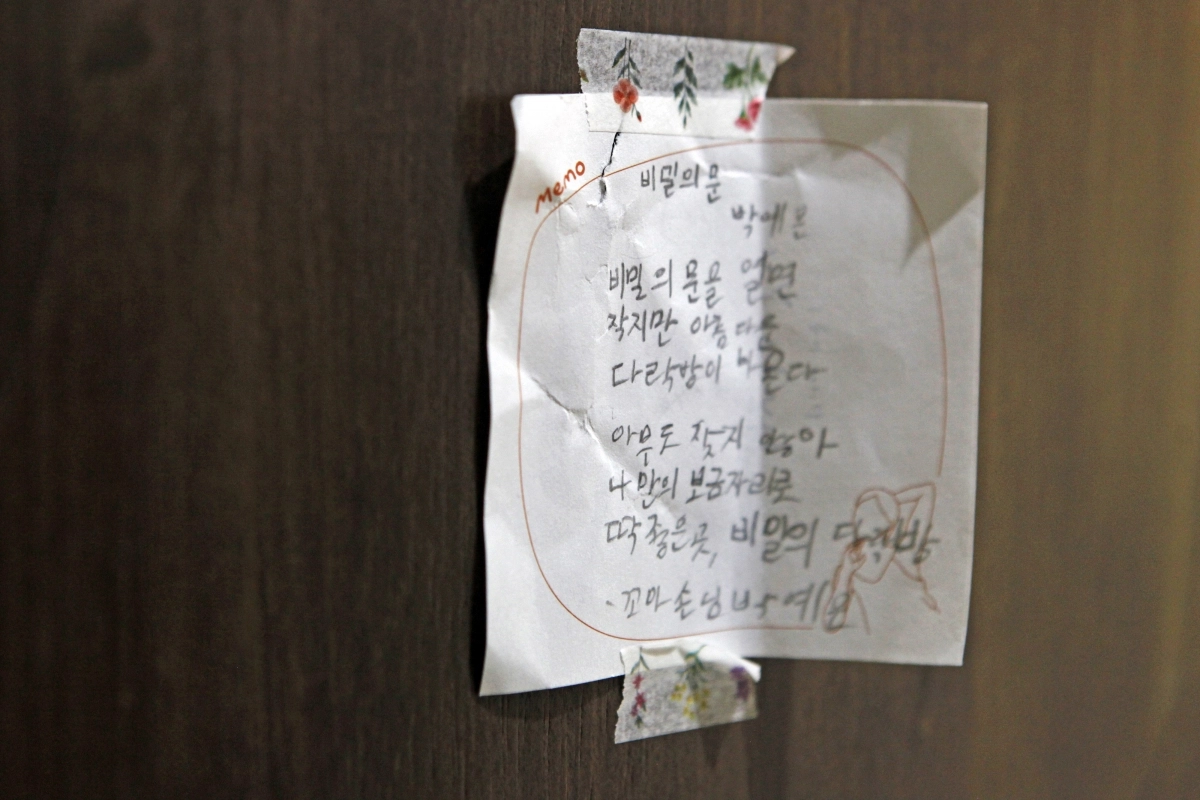 MeMO
비밀의 문
비밀의 문을 열면
작지만 아름다운
다락방이 나온다
아무도 찾지 않아
나만의 보금자리로
딱 좋은 곳, 비밀의 다락방
- 꼬마 손님 박예